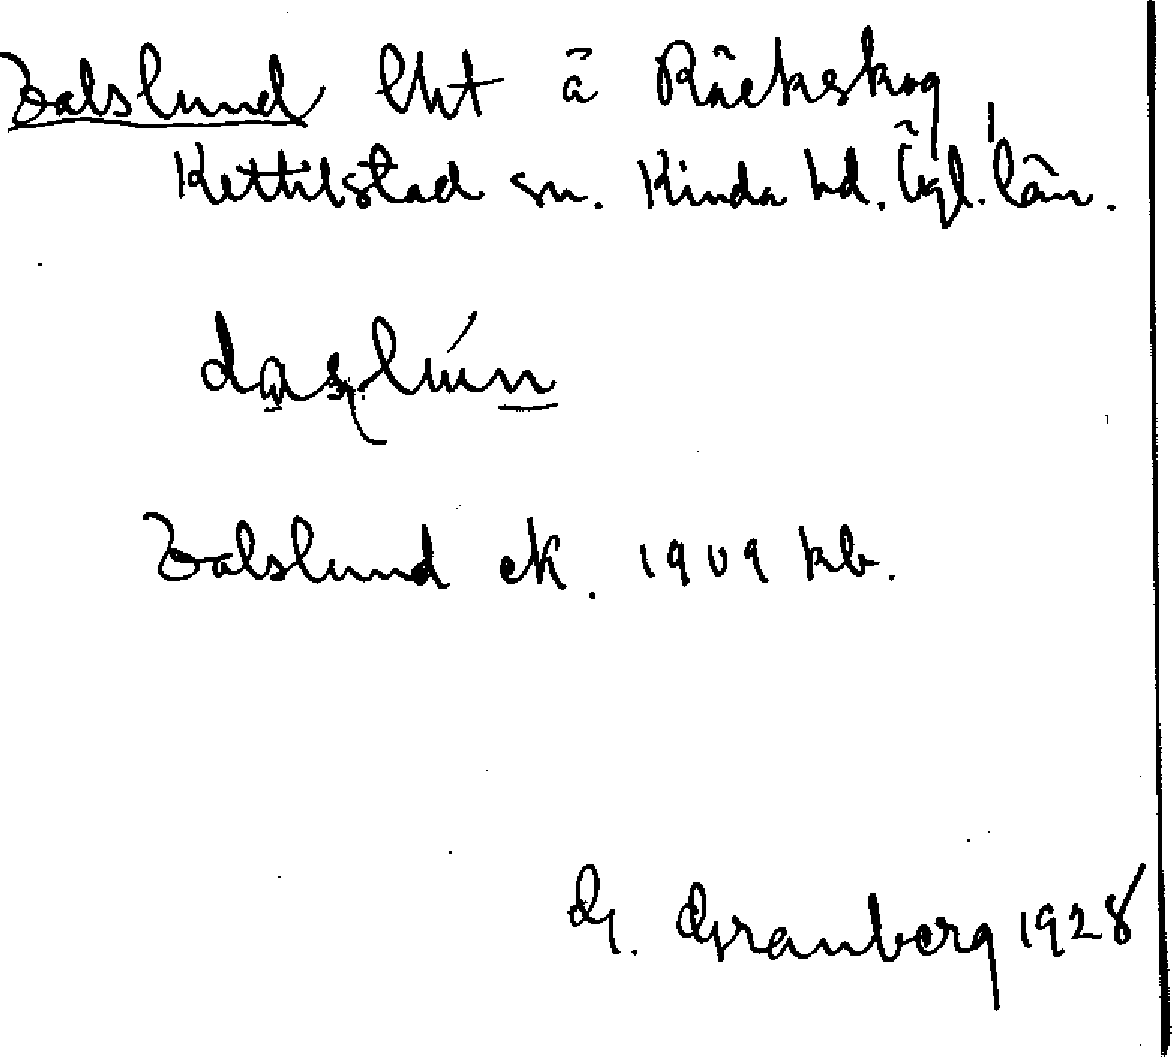 Dalslund lht å Räckskog
Kettilstad sn. Kinda hd. Ögl. län.
Dalslund ek. 1909 kb.
G. Granberg 1928